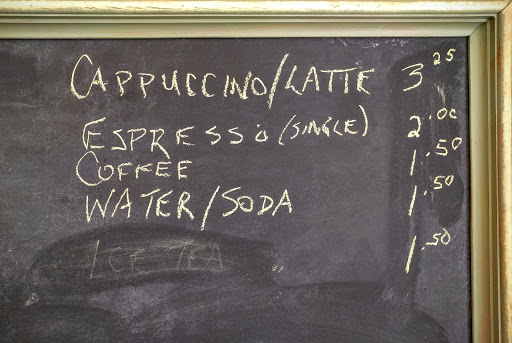 CAPPUCCINO/LATTE 3 25
ESPRESSO (SINGLE) 2.00
COFFEE 1.50
WATER/SODA 1.50
ICE TEA 1.50